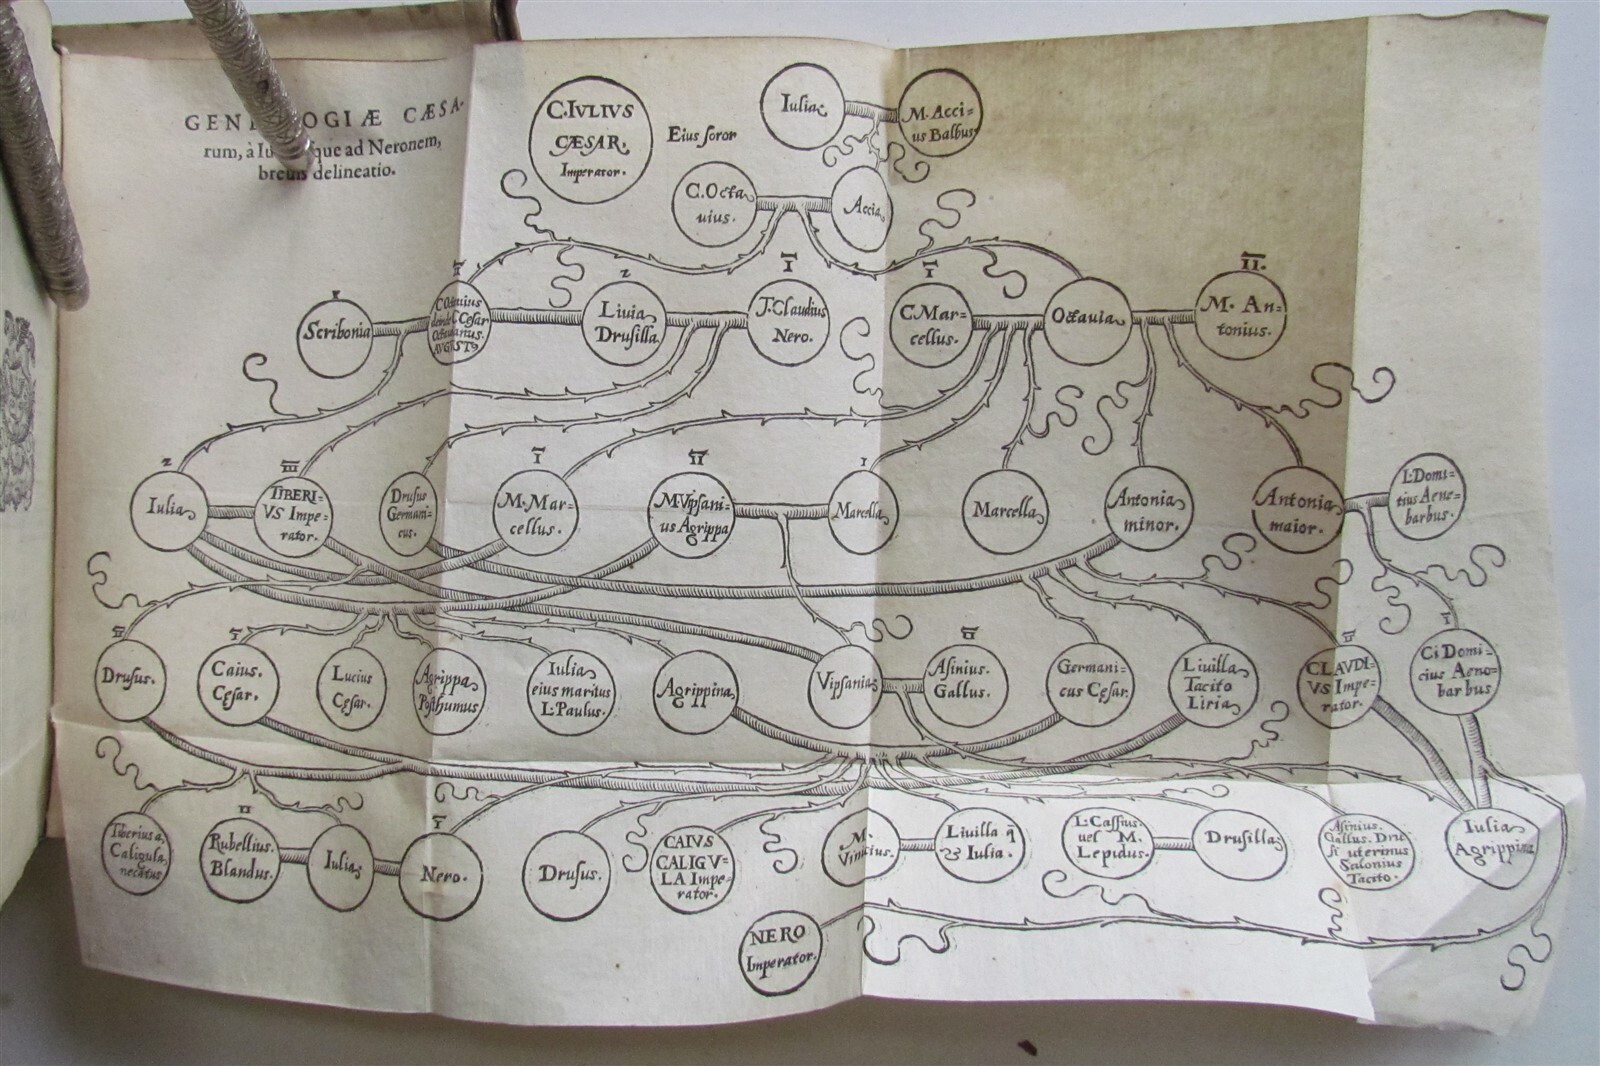 GENE OGIÆ CÆSA-
rum, à Iu que ad Neronem,
breuis delineatio.
C. IVLIVS
CÆSAR.
Imperator.
Eius soror
Iulia
M. Acci=
us Balbus
C. Octa
uius.
Accia
Scribonia
I
C. Octauius
deinde C. Cęsar
Octauianus.
AVGVST9
2
Liuia
Drusilla
I
T. Claudius
Nero.
I
C. Mar=
cellus.
Octauia
II.
M. An=
tonius.
2
Iulia
III
TIBERI=
VS Impe=
rator.
Drusus
Germani=
cus.
I
M. Mar=
cellus.
II
M. Vipsani=
us Agrippa
1
Marcella
Marcella
Antonia
minor.
Antonia
maior.
L. Domi=
tius Aene=
barbus.
II
Drusus.
I
Caius.
Cęsar.
Lucius
Cęsar.
Agrippa
Posthumus
Iulia
eius maritus
L. Paulus.
Agrippina
Vipsania
II
Asinius.
Gallus.
Germani=
cus Cęsar.
Liuilla
Tacito
Liria
II
CLAVDI=
VS Impe=
rator.
I
Ci Domi=
cius Aeno=
barbus
Tiberius a
Caligula
necatus
II
Rubellius.
Blandus.
Iulia
I
Nero.
Drusus.
CAIVS
CALIGV=
LA Impe=
rator.
M.
Vinicius.
Liuilla q̄
& Iulia.
L. Cassius
uel M.
Lepidus.
Drusilla
Asinius.
Gallus. Dru
si uterinus
Salonius
Tacito.
Iulia
Agrippina
NERO
Imperator.